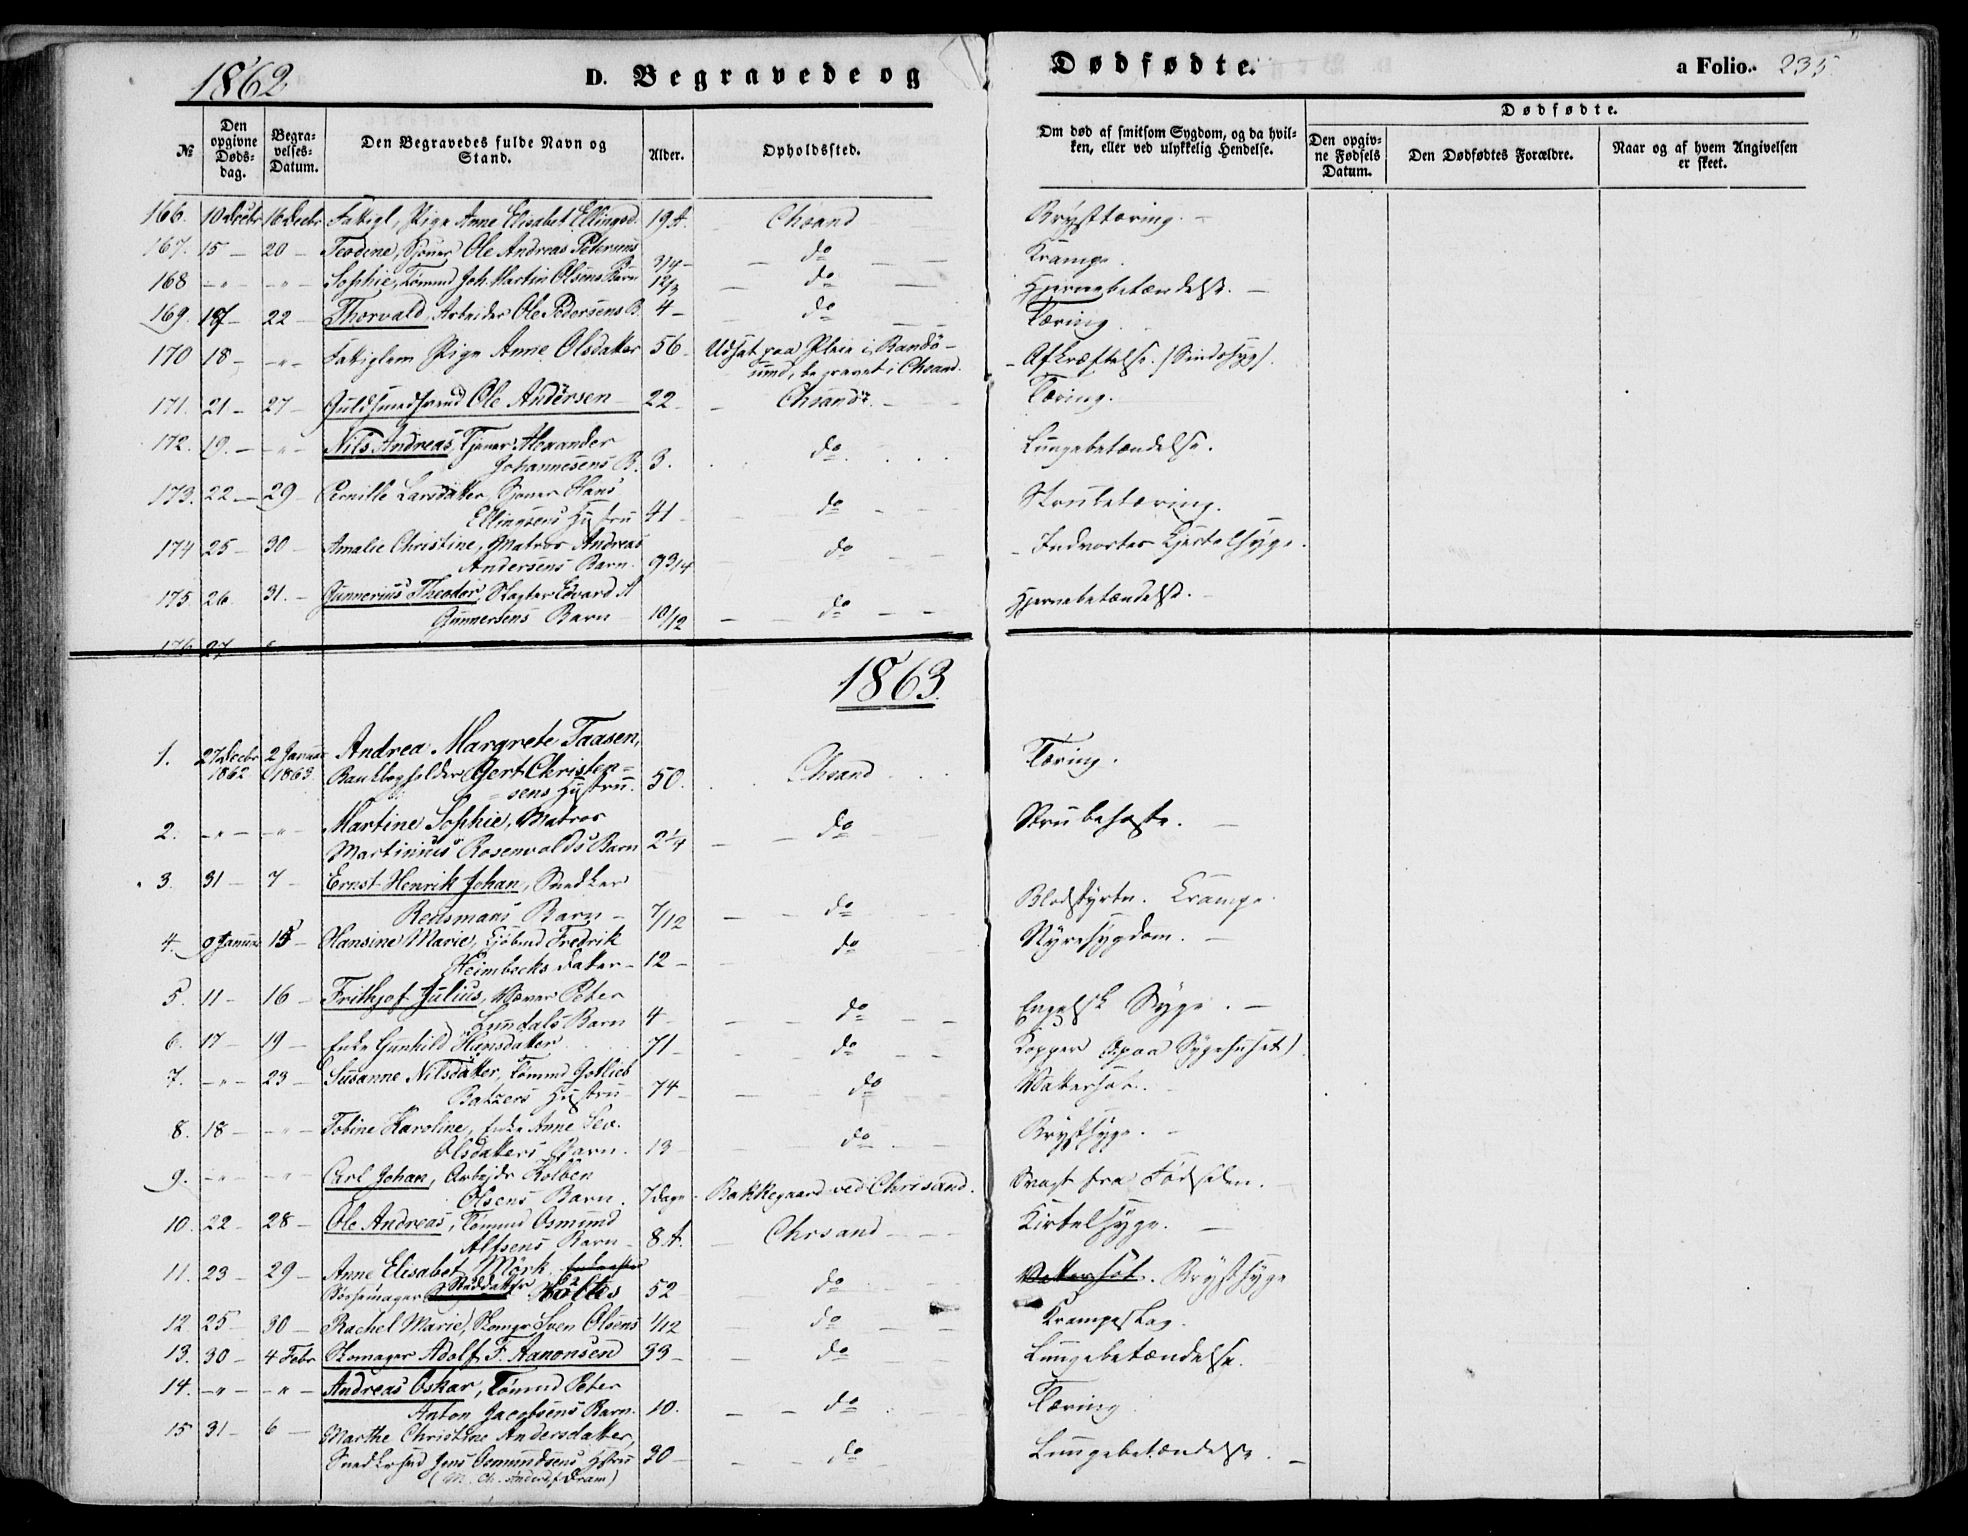 1862
D. Begravede og Dødfødte. a Folio. 235
Dødfødte.
№
Den opgivne Døds-dag.
Begra-velses-Datum.
Den Begravedes fulde Navn og Stand.
Alder.
Opholdssted.
Om død af smitsom Sygdom, og da hvil-ken, eller ved ulykkelig Hendelse.
Den opgiv-ne Fødsels Datum.
Den Dødfødtes Forældre.
Naar og af hvem Angivelsen er skeet.
166. 10 Decbr 16 Decbr Fattigl. Pige Anne Elisabet Ellingsd. 19 A. Chsand Brysttæring.
167. 15 — 20 — Teodine, Sjømr Ole Andreas Petersens 3/4 — do Krampe.
168 — " — — " — Sophie, Tømmd Joh. Martin Olsens Barn 12/3 do Hjernebetændelse. —
169. 17 — 22 — Thorvald, Arbeider Ole Pedersens B. 4 — do Tæring.
170 18 — — " — Fattiglem Pige Anne Olsdatter 56 — Udsat paa Pleie i Randø-
sund, begravet i Chsand. — Afkræftelse. (Sindssyg).
171. 21 — 27 — Guldsmedsvend Ole Andersen 22 — Chsand Tæring.
172. 19. — — " — Nils Andreas, Tjener Alexander
Johannesens B. 3. do Lungebetændelse.
173. 22 — 29 — Pernille Larsdatter, Sjømr Hans
Ellingsens Hustru 41 — do Strubetæring.
174 25 — 30 — Amalie Christine, Matros Andreas
Andersens Barn. 9 3/4 do — Indvortes Kjertelsyge.
175 26. 31. — Gunnerius Theodor, Slagter Edvard A
Gunnersens Barn 10/12 do Hjernebetændelse.
176 27
1863.
1. 27 Decbr 1862 2 Januar 1863 Andrea Margrete Taasen,
Bankbogholder Gert Christen-
sens Hustru. 50. Chsand Tæring.
2. — " — — " — Martine Sophie, Matros
Martinius Rosenvolds Barn 2 1/4 do Strubehoste. —
3. 31 — 7 — Ernst Henrik Johan, Snedker
Reusmans Barn — 7/12 do Blodstyrtn. Krampe.
4. 9 Januar 15 — Hansine Marie, Kjøbmd Fredrik
Heimbecks datter — 12 — do Nyresygdom. —
5. 11 — 16 — Frithjof Julius, Væver Peter
Lundals Barn 4 — do Engelsk Syge. —
6. 17 — 19 — Enke Gunhild Hansdatter 71 — do Kopper (paa Sygehuset)
7. — " — 23 — Susanne Nilsdatter, Tømmd Gotlieb
Batzers Hustru 74 — do Vattersot.
8. 18 — — " — Tobine Karoline, Enke Anne Sev.
Olsdatters Barn. 13 — do Brystsyge. —
9. — " — — " — Carl Johan, Arbejdr Kolben
Olsens Barn. 7 dage Bakkegaard ved Chrisand. Svag fra Fødselen. —
10. 22 — 28 — Ole Andreas, Tømmd Osmund
Alfsens Barn 8 A. Chrsand Kirtelsyge. —
11. 23 — 29 — Anne Elisabet Mørk,
Bøssemager Holtes 52 — do Vattersot. Brystsyge
12. 25 — 30 — Rachel Marie, Skomgr Sven Olsens 1/12 do Krampeslag.
13. 30 — 4 Febr Skomager Adolf F. Aanonsen 33 — do Lungebetændelse.
14. — " — — " — Andreas Oskar, Tømmd Peter
Anton Jacobsens Barn. 10. do Tæring
15 31 — 6 — Marthe Christine Andersdatter,
Snedkersvd Jens Osmundsens Hstru 30 — do Lungebetændelse. —
(M. Ch. Andersd. f. Dram)